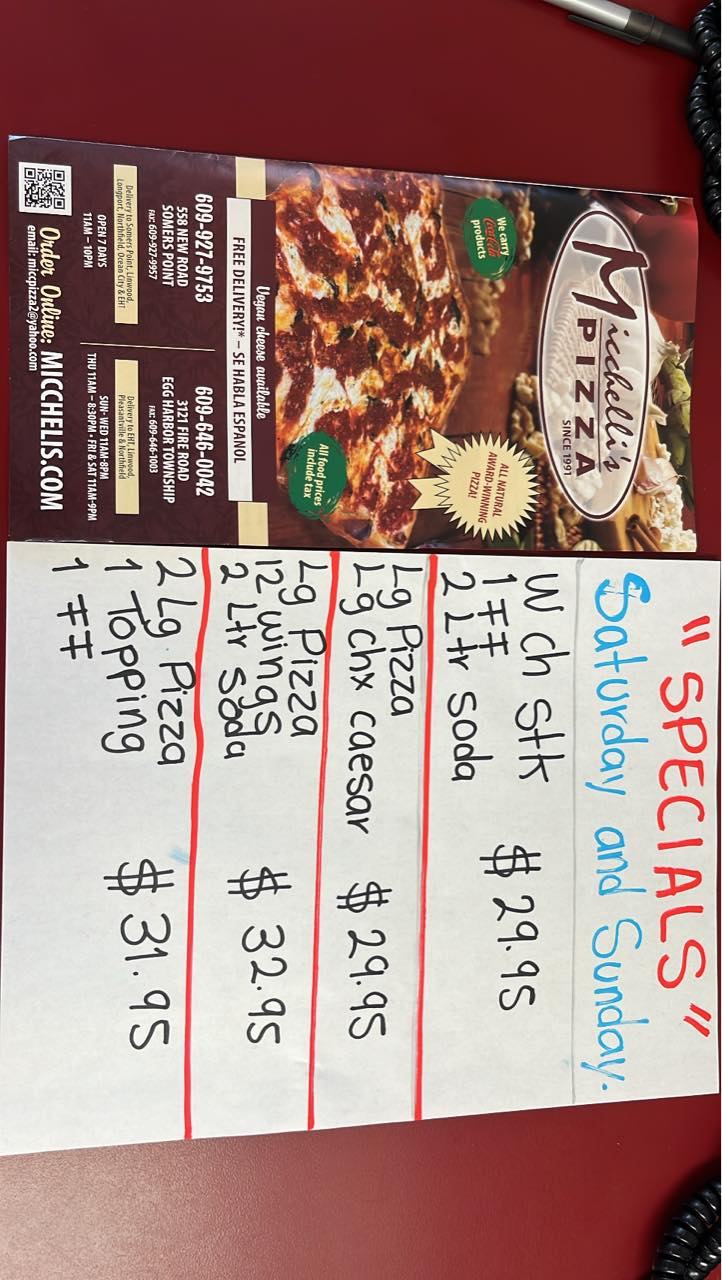 Micchelli's
PIZZA
SINCE 1991
We carry
Coca-Cola
products
ALL NATURAL
AWARD-WINNING
PIZZA!
All food prices
include tax
Vegan cheese available
FREE DELIVERY!* – SE HABLA ESPANOL
609-927-9753
558 NEW ROAD
SOMERS POINT
FAX: 609-927-9957
Delivery to Somers Point, Linwood,
Longport, Northfield, Ocean City & EHT
OPEN 7 DAYS
11AM – 10PM
609-646-0042
3121 FIRE ROAD
EGG HARBOR TOWNSHIP
FAX: 609-646-1003
Delivery to EHT, Linwood,
Pleasantville & Northfield
SUN- WED 11AM-8PM
THU 11AM – 8:30PM • FRI & SAT 11AM-9PM
Order Online: MICCHELIS.COM
email: miccpizza2@yahoo.com
"SPECIALS"
Saturday and Sunday.
W ch Stk
1 FF $29.95
2 Ltr soda
Lg Pizza
Lg chx caesar $29.95
Lg Pizza
12 wings $32.95
2 Ltr soda
2 Lg. Pizza
1 Topping $31.95
1 FF